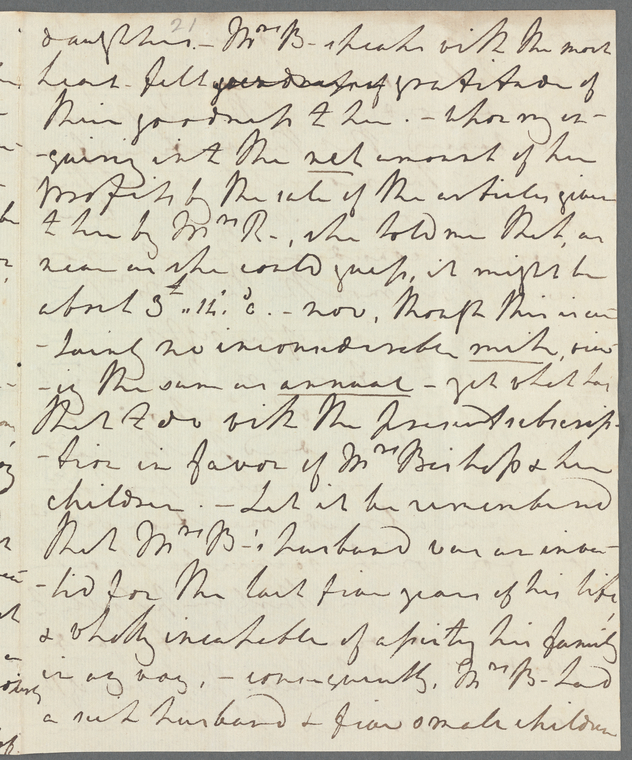 21
daughters. - Mrs B - speaks with the most
heart-felt gratitude of
their goodness to her. - upon my en-
-quiring into the net amount of her
profits by the sale of the articles given
to her by Mrs R -, she told me that, as
near as she could guess, it might be
about 3 - now, though this is cer-
-tainly no inconsiderable mite, view-
-ing the same as annual - yet what has
that to do with the present subscrip-
-tion in favor of Mrs Bishop & her
children. - Let it be remembered
that Mrs B-'s husband was an inva-
-lid for the last five years of his life,
& wholly incapable of assisting his family
in any way, - consequently, Mrs B - had
a sick husband & five small children